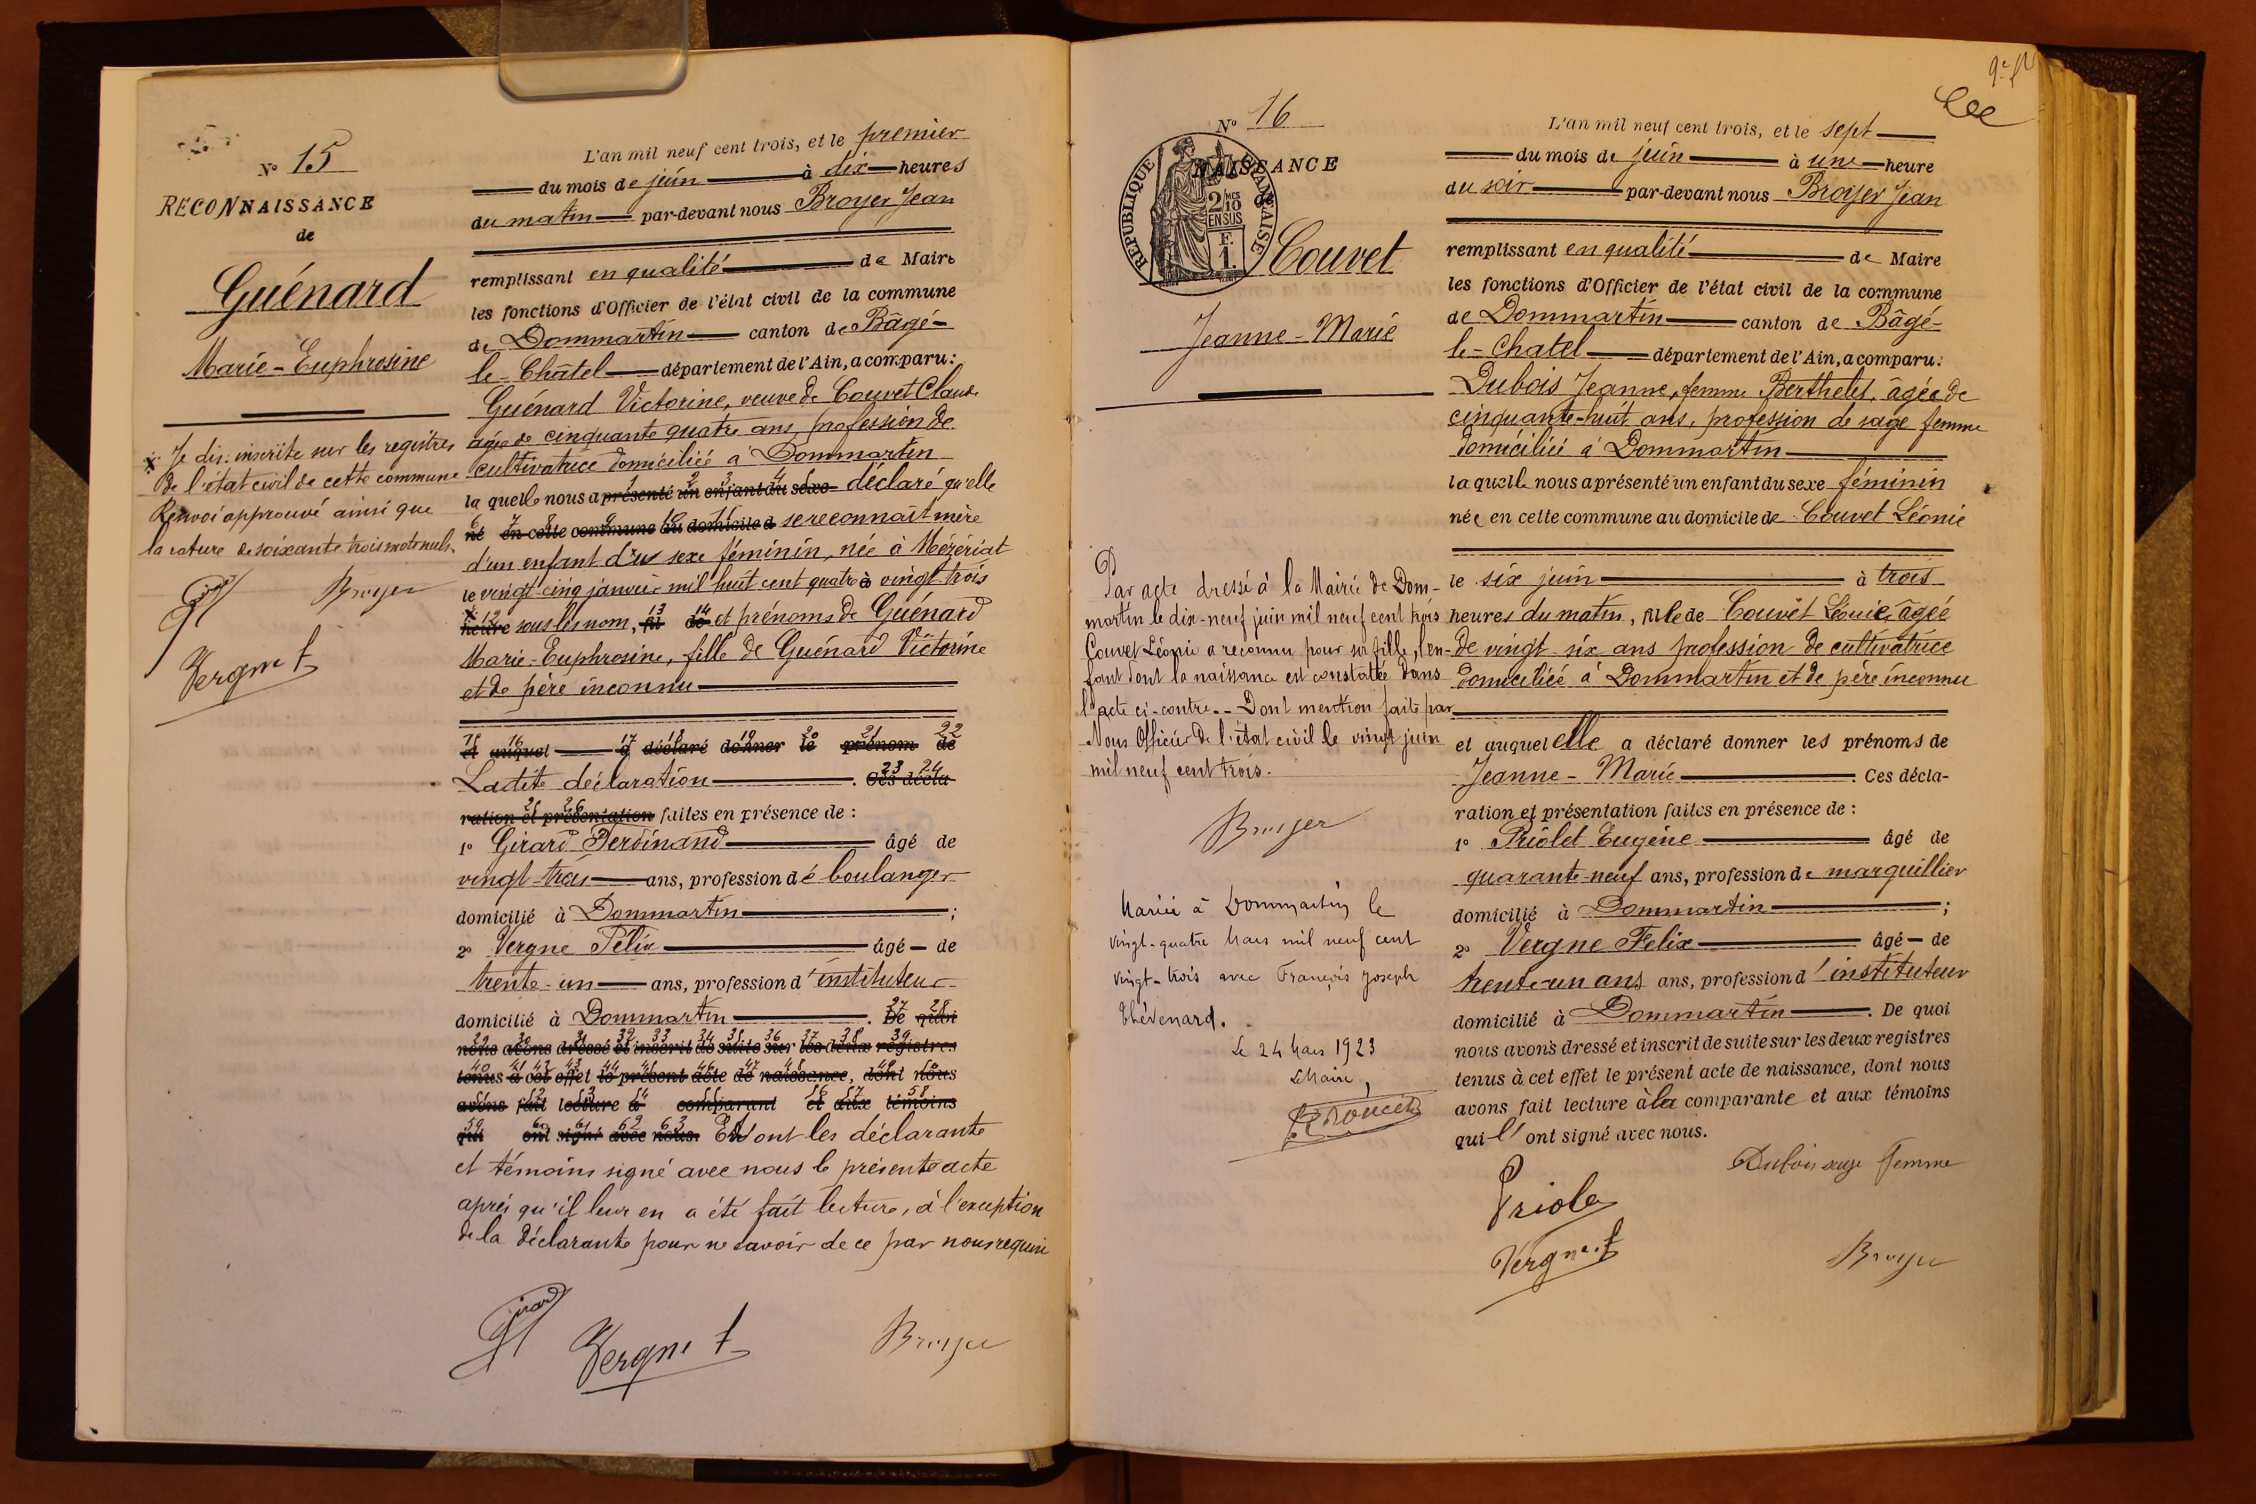 N° 15
RECONNAISSANCE
de
Guénard
Marie-Euphrosine
Je dis: inscrite sur les registres
de l'état civil de cette commune
Renvoi approuvé ainsi que
la rature de soixante trois mots nuls.
Broyer
Vergne f
L'an mil neuf cent trois, et le premier
du mois de juin à dix heures
du matin par-devant nous Broyer Jean
remplissant en qualité de Maire
les fonctions d'Officier de l'état civil de la commune
de Dommartin canton de Bâgé-
le-Châtel département de l'Ain, a comparu:
Guénard Victorine, veuve de Couvet Claude
âgée de cinquante quatre ans, profession de
cultivatrice domiciliée à Dommartin
laquelle nous a présenté un enfant du sexe déclaré qu'elle
né en cette commune au domicile d se reconnaît mère
d'un enfant du sexe féminin, née à Mézériat
le vingt-cinq janvier mil huit cent quatre vingt-trois
heure sous les nom, fil de et prénoms de Guénard
Marie-Euphrosine, fille de Guénard Victorine
et de père inconnu
et auquel a déclaré donner le prénom de
Ladite déclaration. Ces décla-
ration et présentation faites en présence de :
1° Girard Ferdinand âgé de
vingt-trois ans, profession de boulanger
domicilié à Dommartin ;
2° Vergne Félix âgé de
trente-un ans, profession d'instituteur
domicilié à Dommartin. De quoi
nous avons dressé et inscrit de suite sur les deux registres
tenus à cet effet le présent acte de naissance, dont nous
avons fait lecture à comparant et aux témoins
qui ont signé avec nous. Et ont les déclarante
et témoins signé avec nous le présente acte
après qu'il leur en a été fait lecture, à l'exception
de la déclarante pour ne savoir de ce par nous requise
Girard
Vergne f
Broyer
N° 16
NAISSANCE
de
REPUBLIQUE FRANÇAISE
2/10 MES EN SUS
F. 1.
Couvet
Jeanne-Marie
Par acte dressé à la Mairie de Dom-
martin le dix-neuf juin mil neuf cent trois
Couvet Léonie a reconnu pour sa fille, l'en-
fant dont la naissance est constatée dans
l'acte ci-contre. - Dont mention faite par
Nous Officier de l'état civil le vingt juin
mil neuf cent trois.
Broyer
Mariée à Dommartin le
vingt-quatre Mars mil neuf cent
vingt-trois avec François Joseph
Thévenard.
Le 24 Mars 1923
Le Maire,
L'an mil neuf cent trois, et le sept
du mois de juin à une heure
du soir par-devant nous Broyer Jean
remplissant en qualité de Maire
les fonctions d'Officier de l'état civil de la commune
de Dommartin canton de Bâgé-
le-Chatel département de l'Ain, a comparu:
Dubois Jeanne, femme Berthelet, âgée de
cinquante-huit ans, profession de sage femme
domiciliée à Dommartin
laquelle nous a présenté un enfant du sexe féminin
née en cette commune au domicile de Couvet Léonie
le six juin à trois
heures du matin, fille de Couvet Léonie, âgée
de vingt-six ans profession de cultivatrice
domiciliée à Dommartin et de père inconnu
et auquel elle a déclaré donner les prénoms de
Jeanne-Marie. Ces décla-
ration et présentation faites en présence de :
1° Priolet Eugène âgé de
quarante-neuf ans, profession de marguillier
domicilié à Dommartin ;
2° Vergne Félix âgé de
trente-un ans ans, profession d'instituteur
domicilié à Dommartin. De quoi
nous avons dressé et inscrit de suite sur les deux registres
tenus à cet effet le présent acte de naissance, dont nous
avons fait lecture à la comparante et aux témoins
qui l'ont signé avec nous.
Dubois sage femme
Priolet
Vergne f
Broyer